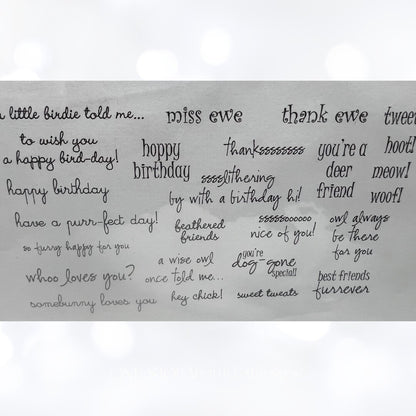 a little birdie told me...
miss ewe
thank ewe
tweet
to wish you
a happy bird-day!
happy
birthday
thankssssssss
you're a
deer
friend
hoot!
meow!
woof!
happy birthday
sssslithering
by with a birthday hi!
have a purr-fect day!
feathered
friends
sssssooooo
nice of you!
owl always
be there
for you
so furry happy for you
whoo loves you?
a wise owl
once told me...
you're
dog-gone
special!
best friends
furrever
somebunny loves you
hey chick!
sweet tweats